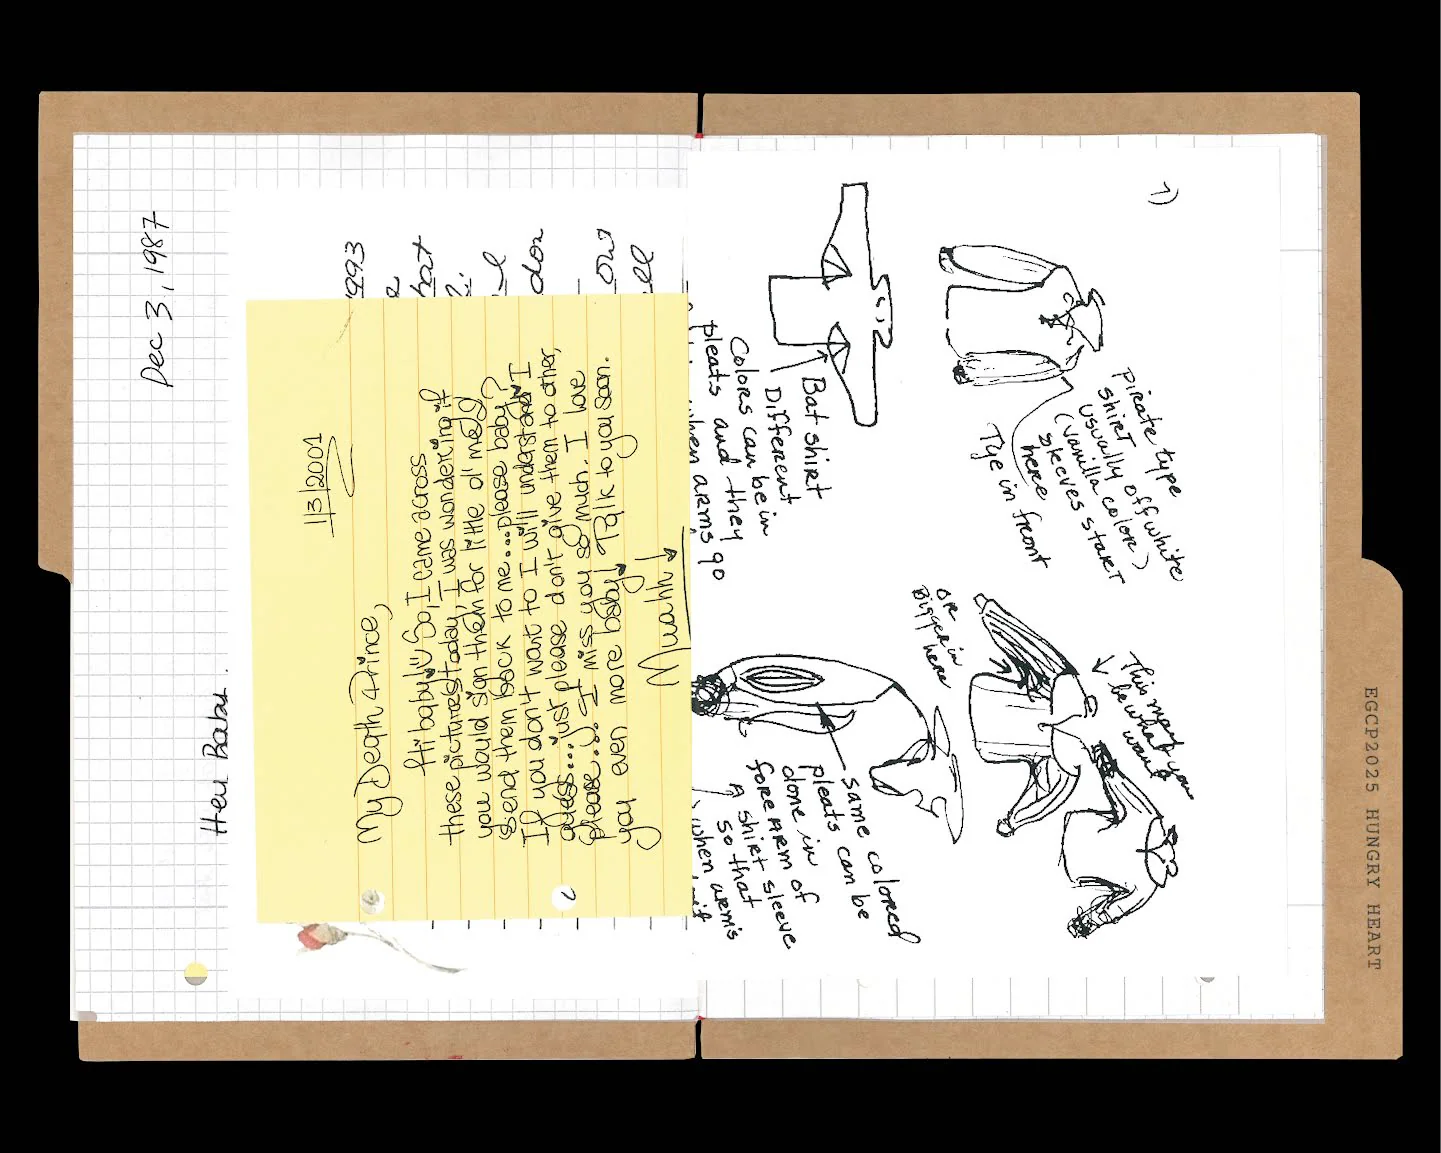 Dec 3, 1987
Hey Baby.
1993
hat
don
1/3/2001
My Death Prince,
Hi baby! So, I came across
these pictures today, I was wondering if
you would sign them for little ol' me &
send them back to me...please baby?
If you don't want to I will understand I
guess....just please don't give them to other,
please.... I miss you so much. I love
you even more baby! Talk to you soon.
Muahh!
1)
Pirate type
shirt
usually off white
(vanilla color)
sleeves start
here
Tye in front
Bat shirt
Different
Colors can be in
pleats and they
when arms go
OR
Bigger in
here
This may
be what you
want
same colored
pleats can be
done in
forearm of
A shirt sleeve
so that
when arm's
EGCP2025 HUNGRY HEART